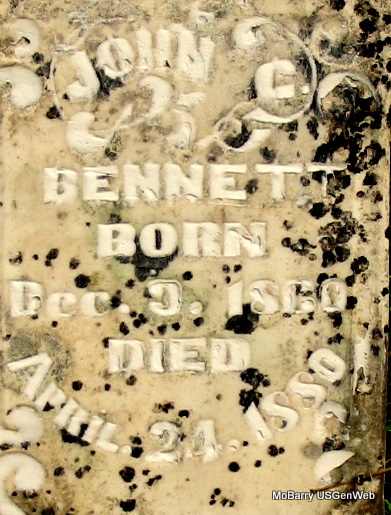 JOHN C.
BENNETT
BORN
Dec. 9. 1860
DIED
APRIL. 24. 1880
MoBarry USGenWeb